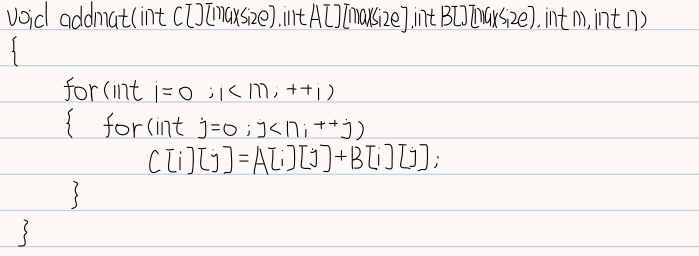 void addmat(int C[][maxsize],int A[][maxsize],int B[][maxsize],int m,int n)
{
for(int i=0 ;i<m; ++i)
{ for(int j=0;j<n;++j)
C[i][j]=A[i][j]+B[i][j];
}
}